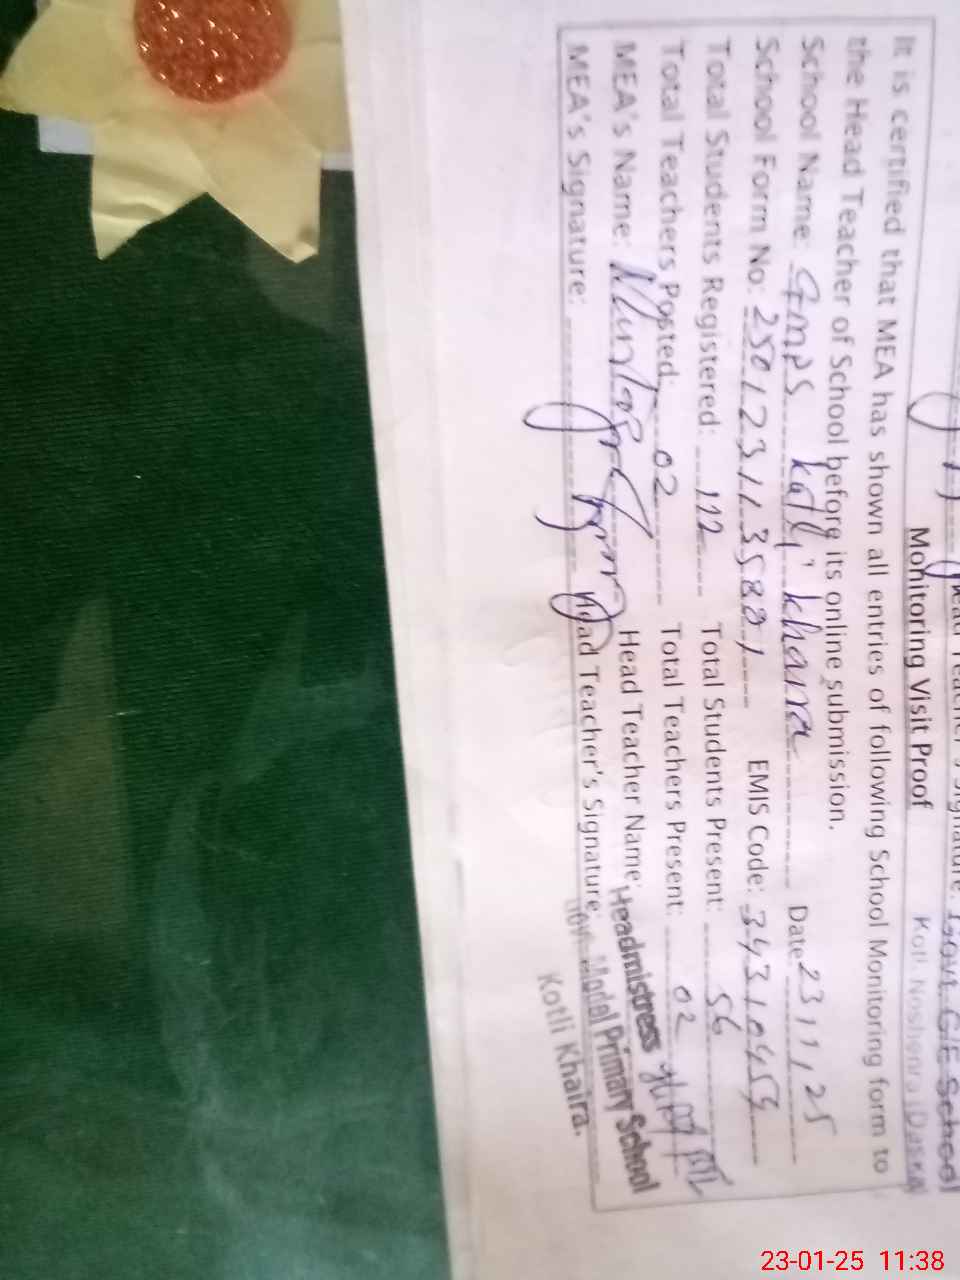 Head Teacher's Signature: Govt. G/E School
Monitoring Visit Proof
It is certified that MEA has shown all entries of following School Monitoring form to
the Head Teacher of School before its online submission.
School Name: GMPS kotli khaira Date: 23/1/25
School Form No: 2501231135881 EMIS Code: 34310459
Total Students Registered: 112 Total Students Present: 56
Total Teachers Posted: 02 Total Teachers Present: 02
MEA's Name: Head Teacher Name:
MEA's Signature: Head Teacher's Signature:
Headmistress
Govt. Model Primary School
Kotli Khaira.
23-01-25 11:38